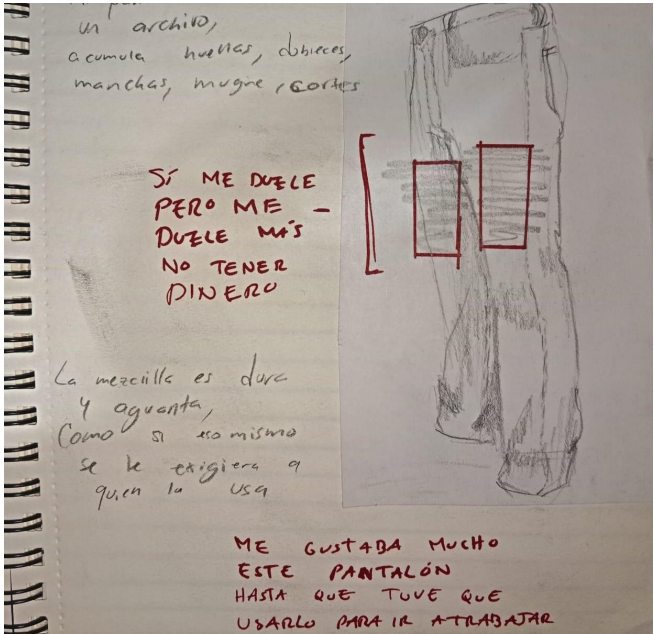 un archivo,
acumula huellas, dobleces,
manchas, mugre, cortes
SÍ ME DUELE
PERO ME —
DUELE MÁS
NO TENER
DINERO
La mezclilla es dura
y aguanta,
Como si eso mismo
se le exigiera a
quien la usa
ME GUSTABA MUCHO
ESTE PANTALÓN
HASTA QUE TUVE QUE
USARLO PARA IR A TRABAJAR